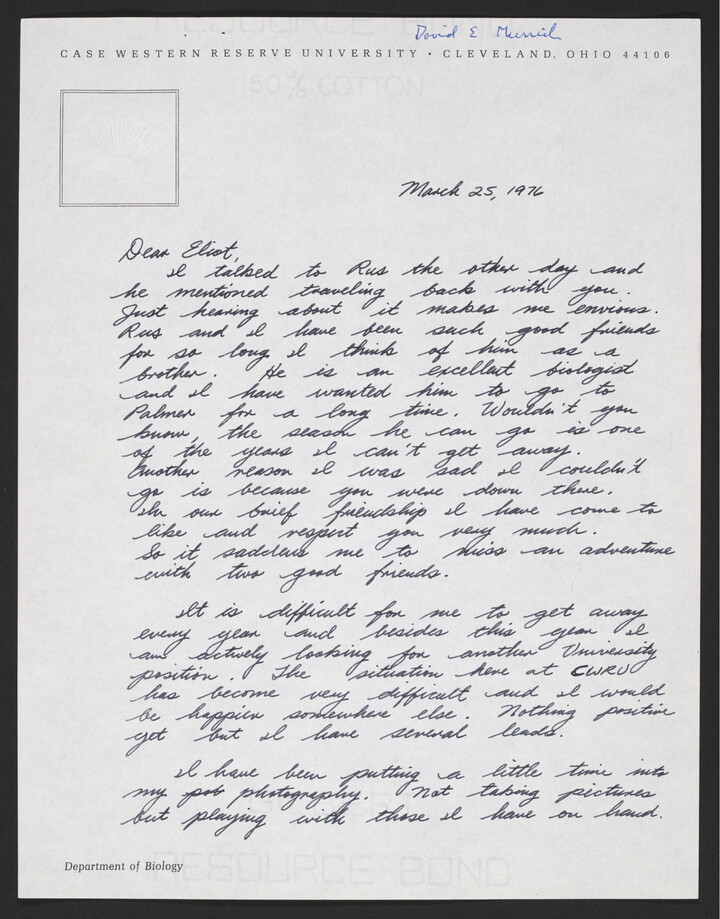 David E Murrish
CASE WESTERN RESERVE UNIVERSITY • CLEVELAND, OHIO 44106
50% COTTON
March 25, 1976
Dear Eliot,
I talked to Rus the other day and
he mentioned traveling back with you.
Just hearing about it makes me envious.
Rus and I have been such good friends
for so long I think of him as a
brother. He is an excellent biologist
and I have wanted him to go to
Palmer for a long time. Wouldn't you
know, the season he can go is one
of the years I can't get away.
Another reason I was sad I couldn't
go is because you were down there.
In our brief friendship I have come to
like and respect you very much.
So it saddens me to miss an adventure
with two good friends.
It is difficult for me to get away
every year and besides this year I
am actively looking for another University
position. The situation here at CWRU
has become very difficult and I would
be happier somewhere else. Nothing positive
yet but I have several leads.
I have been putting a little time into
my pob photography. Not taking pictures
but playing with those I have on hand.
Department of Biology
RESOURCE BOND